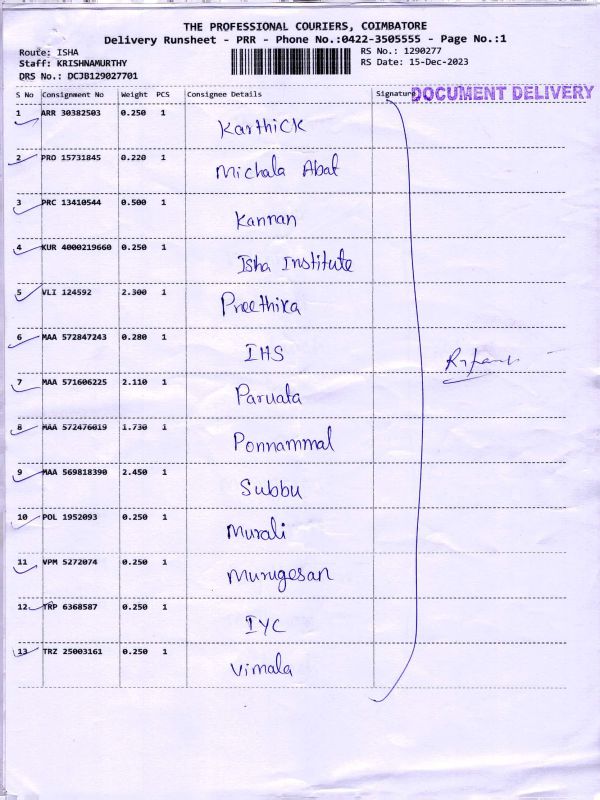 THE PROFESSIONAL COURIERS, COIMBATORE
Delivery Runsheet - PRR - Phone No.:0422-3505555 - Page No.:1
Route: ISHA RS No.: 1290277
Staff: KRISHNAMURTHY RS Date: 15-Dec-2023
DRS No.: DCJB129027701
S No Consignment No Weight PCS Consignee Details Signature DOCUMENT DELIVERY
1 ARR 30382503 0.250 1 Karthick
2 PRO 15731845 0.220 1 Michala Abat
3 PRC 13410544 0.500 1 Kannan
4 KUR 4000219660 0.250 1 Isha Institute
5 VLI 124592 2.300 1 Preethika
6 MAA 572847243 0.280 1 IHS
7 MAA 571606225 2.110 1 Parvata
8 MAA 572476019 1.730 1 Ponnammal
9 MAA 569818390 2.450 1 Subbu
10 POL 1952093 0.250 1 Murali
11 VPM 5272074 0.250 1 Murugesan
12 TRP 6368587 0.250 1 IYC
13 TRZ 25003161 0.250 1 Vimala